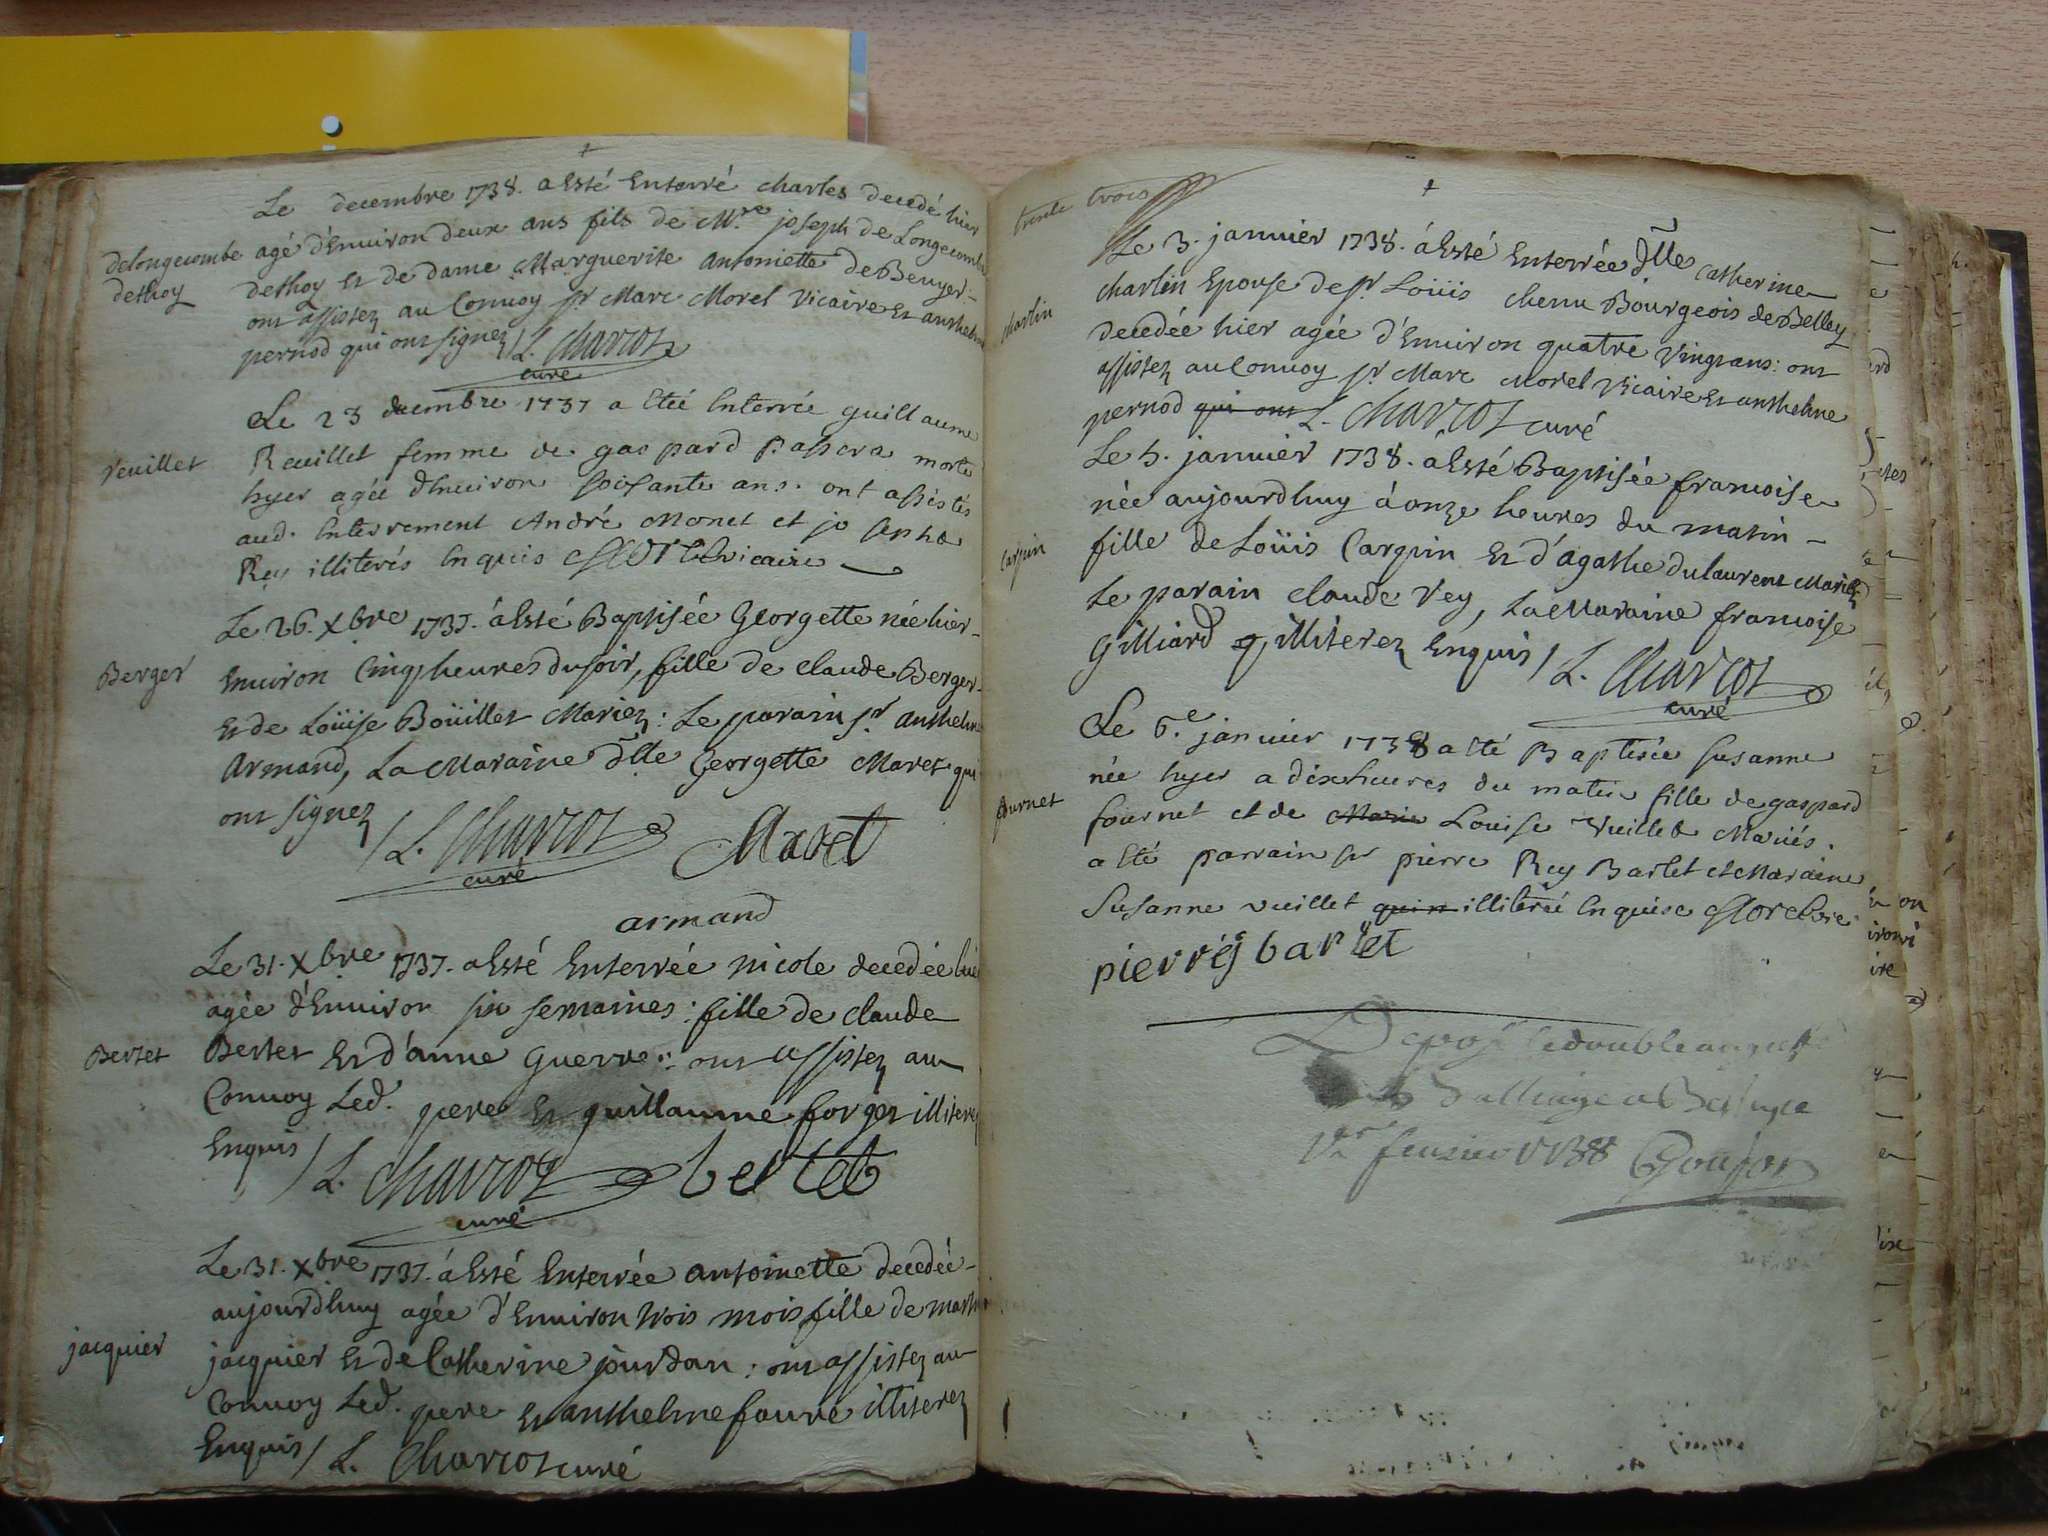 Le decembre 1738. a Esté Enterré charles decedé hier
delongecombe agé d'Enuiron deux ans fils de Mre. joseph de Longecombe
dethoy dethoy Et de dame Marguerite Antoniette de
ont assistez au Conuoy sr. Marc Morel Vicaire Et anthelme
pernod qui ont signez / L. Charcot
curé
Le 23 decembre 1737 a Eté Enterrée guillaume
reuillet Reuillet femme de gaspard morte
hyer agée d'Enuiron soisante ans. ont assistés
aud. Enterrement André Monet et josephe
Rey illiterés Enquis Morel vicaire
Le 26. Xbre 1737. à Esté Baptisée Georgette née hier
Berger Enuiron Cinq heures du soir, fille de claude Berger
Et de Loüise Boüillet Mariez: Le parain sr. anthelme
Armand, La Maraine dlle Georgette Maret qui
ont signez
/ L. Charcot Maret
curé
armand
Le 31. Xbre 1737. a Esté Enterrée nicole decedée hier
agée d'Enuiron six semaines: fille de claude
Bertet Bertet Et d'anne Guerre: ont assistez au
Conuoy Led. pere Et guillaume forger illiterez
Enquis / L. Charcot bertet
curé
Le 31. Xbre 1737. à Esté Enterrée antoinette decedée
aujourdhuy agée d'Enuiron trois mois fille de
jacquier jacquier Et de Catherine jourdan: ont assistez au
Conuoy Led. pere Et anthelme faure illiterez
Enquis / L. Charcot curé
trente trois
Le 3. januier 1738. à Esté Enterrée dlle Catherine
charlin charlin Epouse de sr. Loüis chenu Bourgeois de Belley
decedée hier agée d'Enuiron quatre vingt ans: ont
assistez au Conuoy sr. Marc Morel Vicaire Et anthelme
pernod qui ont L. Charcot curé
Le 5. januier 1738. à Esté Baptisée francoise
née aujourdhuy à onze heures du matin
Carquin fille de Loüis Carquin Et d'agathe dulaurent Mariez
Le parain claude Vey, La Maraine francoise
Gilliard illiterez Enquis / L. Charcot
curé
Le 6e. januier 1738 a Eté Baptisée Susanne
née hyer a dix heures du matin fille de gaspard
fournet fournet et de Marie Louise Vuillet Mariés.
a Eté parrain sr pierre Rey Bartet et Maraine
Susanne vuillet illiterée Enquise Morel vic
pierre bartet
Deposé le double au greffe
Balliage
fevrier 1738